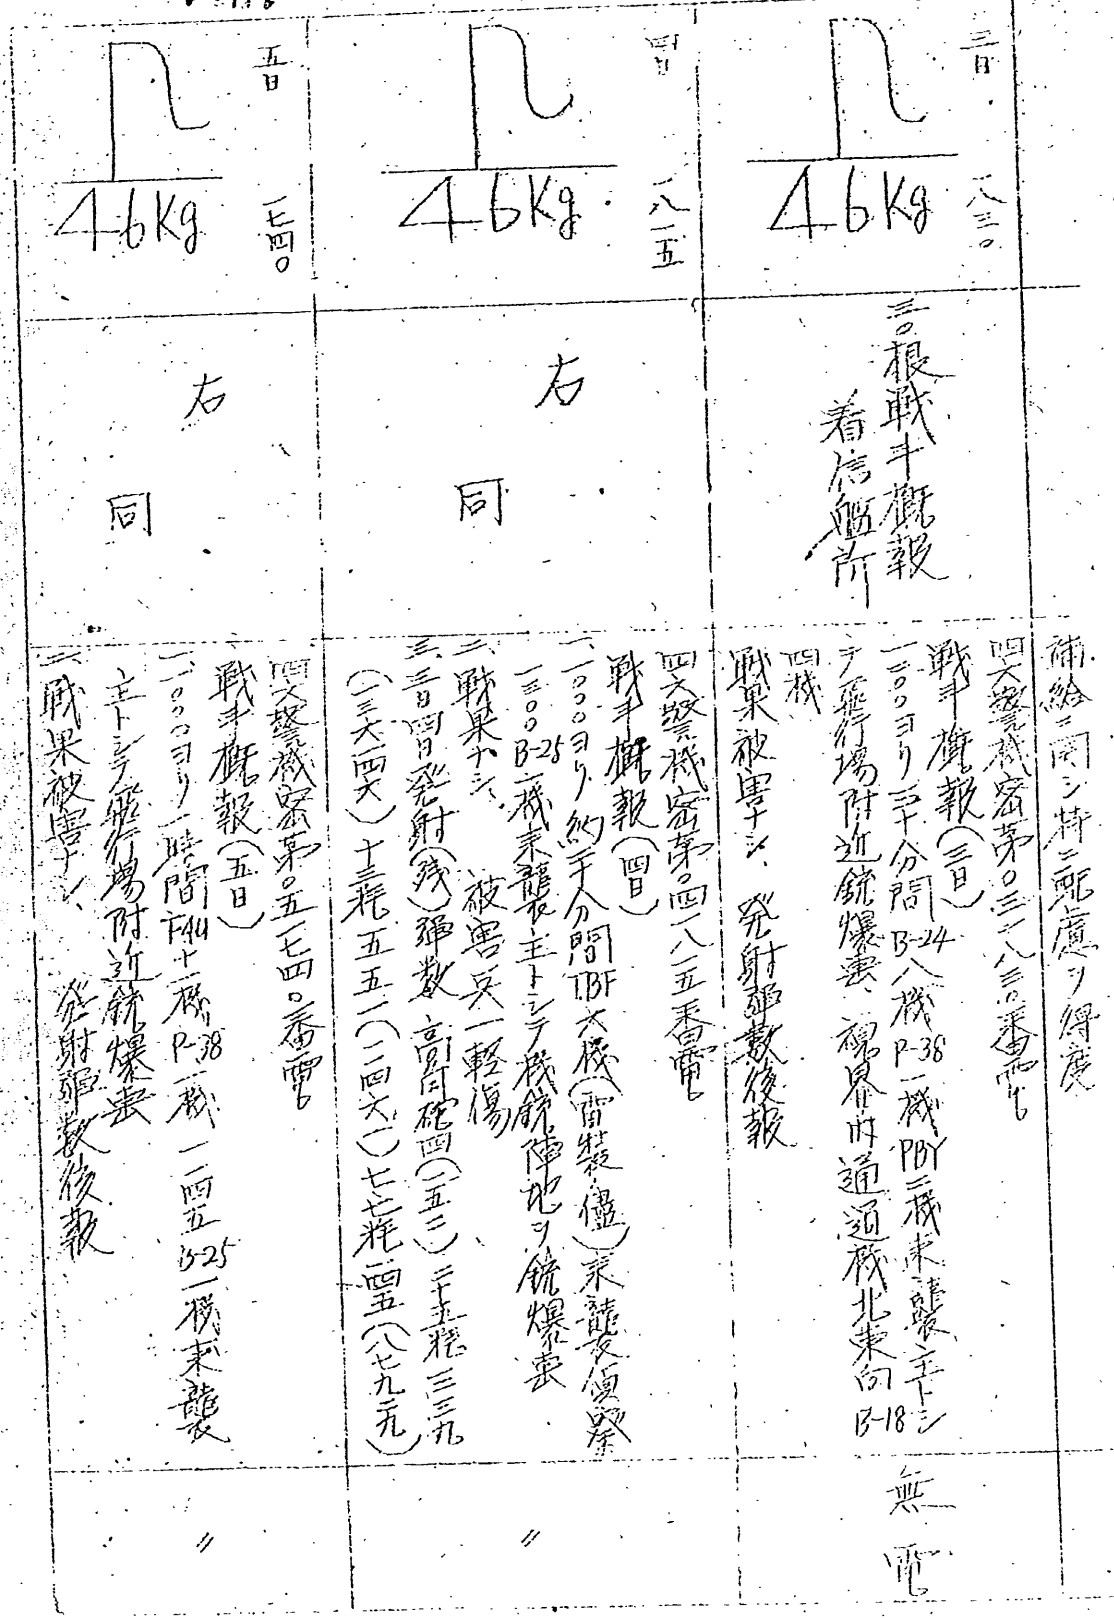 補給ニ関シ特ニ配慮ヲ得度
三日 一八三〇
46Kg
三〇根戦斗概報
着信艦所
四六警機密第〇三一八三〇番電
戦斗概報(三日)
一三〇〇ヨリ三十分間B-24八機P-38一機PBY二機来襲主トシ
テ飛行場附近銃爆撃、視界内通過機北東向B-18
四機
戦果被害ナシ、発射弾数後報
無電
四日 一八一五
46Kg
右同
四六警機密第〇四一八一五番電
戦斗概報(四日)
一、一〇〇〇ヨリ約三十分間TBF六機(雷装ノ儘)来襲偵察
一三〇〇B-25一機来襲主トシテ機銃陣地ヲ銃爆撃
二、戦果ナシ、被害兵一軽傷
三、三日四日発射(残)弾数 高角砲四(一五二)二十五粍三三九
(一三六四六)十三粍五五一(一二四六一)七七粍一四五(八七九二九)
〃
五日 一七四〇
46Kg
右同
四六警機密第〇五一七四〇番電
戦斗概報(五日)
一、一〇〇〇ヨリ一時間F4U十一機P-38一機一一四五B-25一機来襲
主トシテ飛行場附近銃爆撃
二、戦果被害ナシ、発射弾数後報
〃